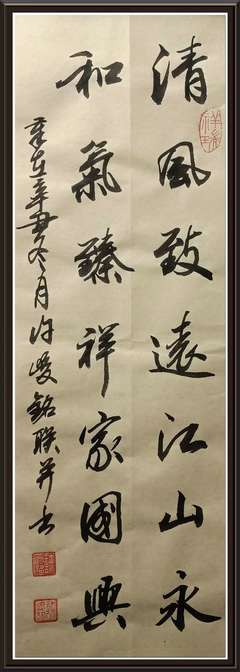 清風致遠江山永
和氣臻祥家國興
歲在辛丑冬月許峻銘聯并書